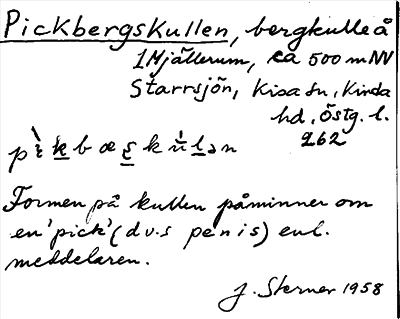 Pickbergskullen, bergkulle å
1 Mjällerum, ca 500 m NV
Starrsjön, Kisa sn, Kinda
hd, Östg. l.
262
pìkbæskùlən
Formen på kullen påminner om
en 'pick' (dvs penis) enl.
meddelaren.
J. Sterner 1958